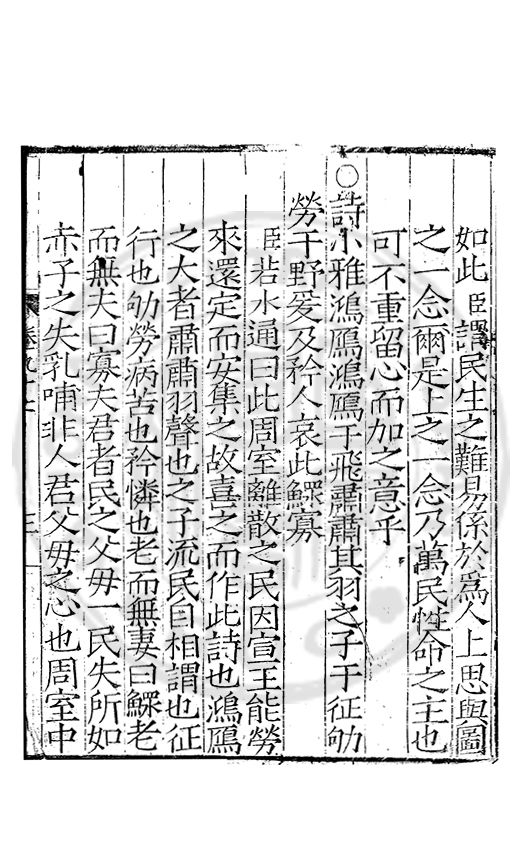 如此臣謂民生之難易係於爲人上思與圖
之一念爾是上之一念乃萬民性命之主也
可不重留心而加之意乎
○詩小雅鴻鴈鴻鴈于飛肅肅其羽之子于征劬
勞于野爰及矜人哀此鰥寡
臣若水通曰此周室離散之民因宣王能勞
來還定而安集之故喜之而作此詩也鴻鴈
之大者肅肅羽聲也之子流民自相謂也征
行也劬勞病苦也矜憐也老而無妻曰鰥老
而無夫曰寡夫君者民之父毋一民失所如
赤子之失乳哺非人君父毋之心也周室中